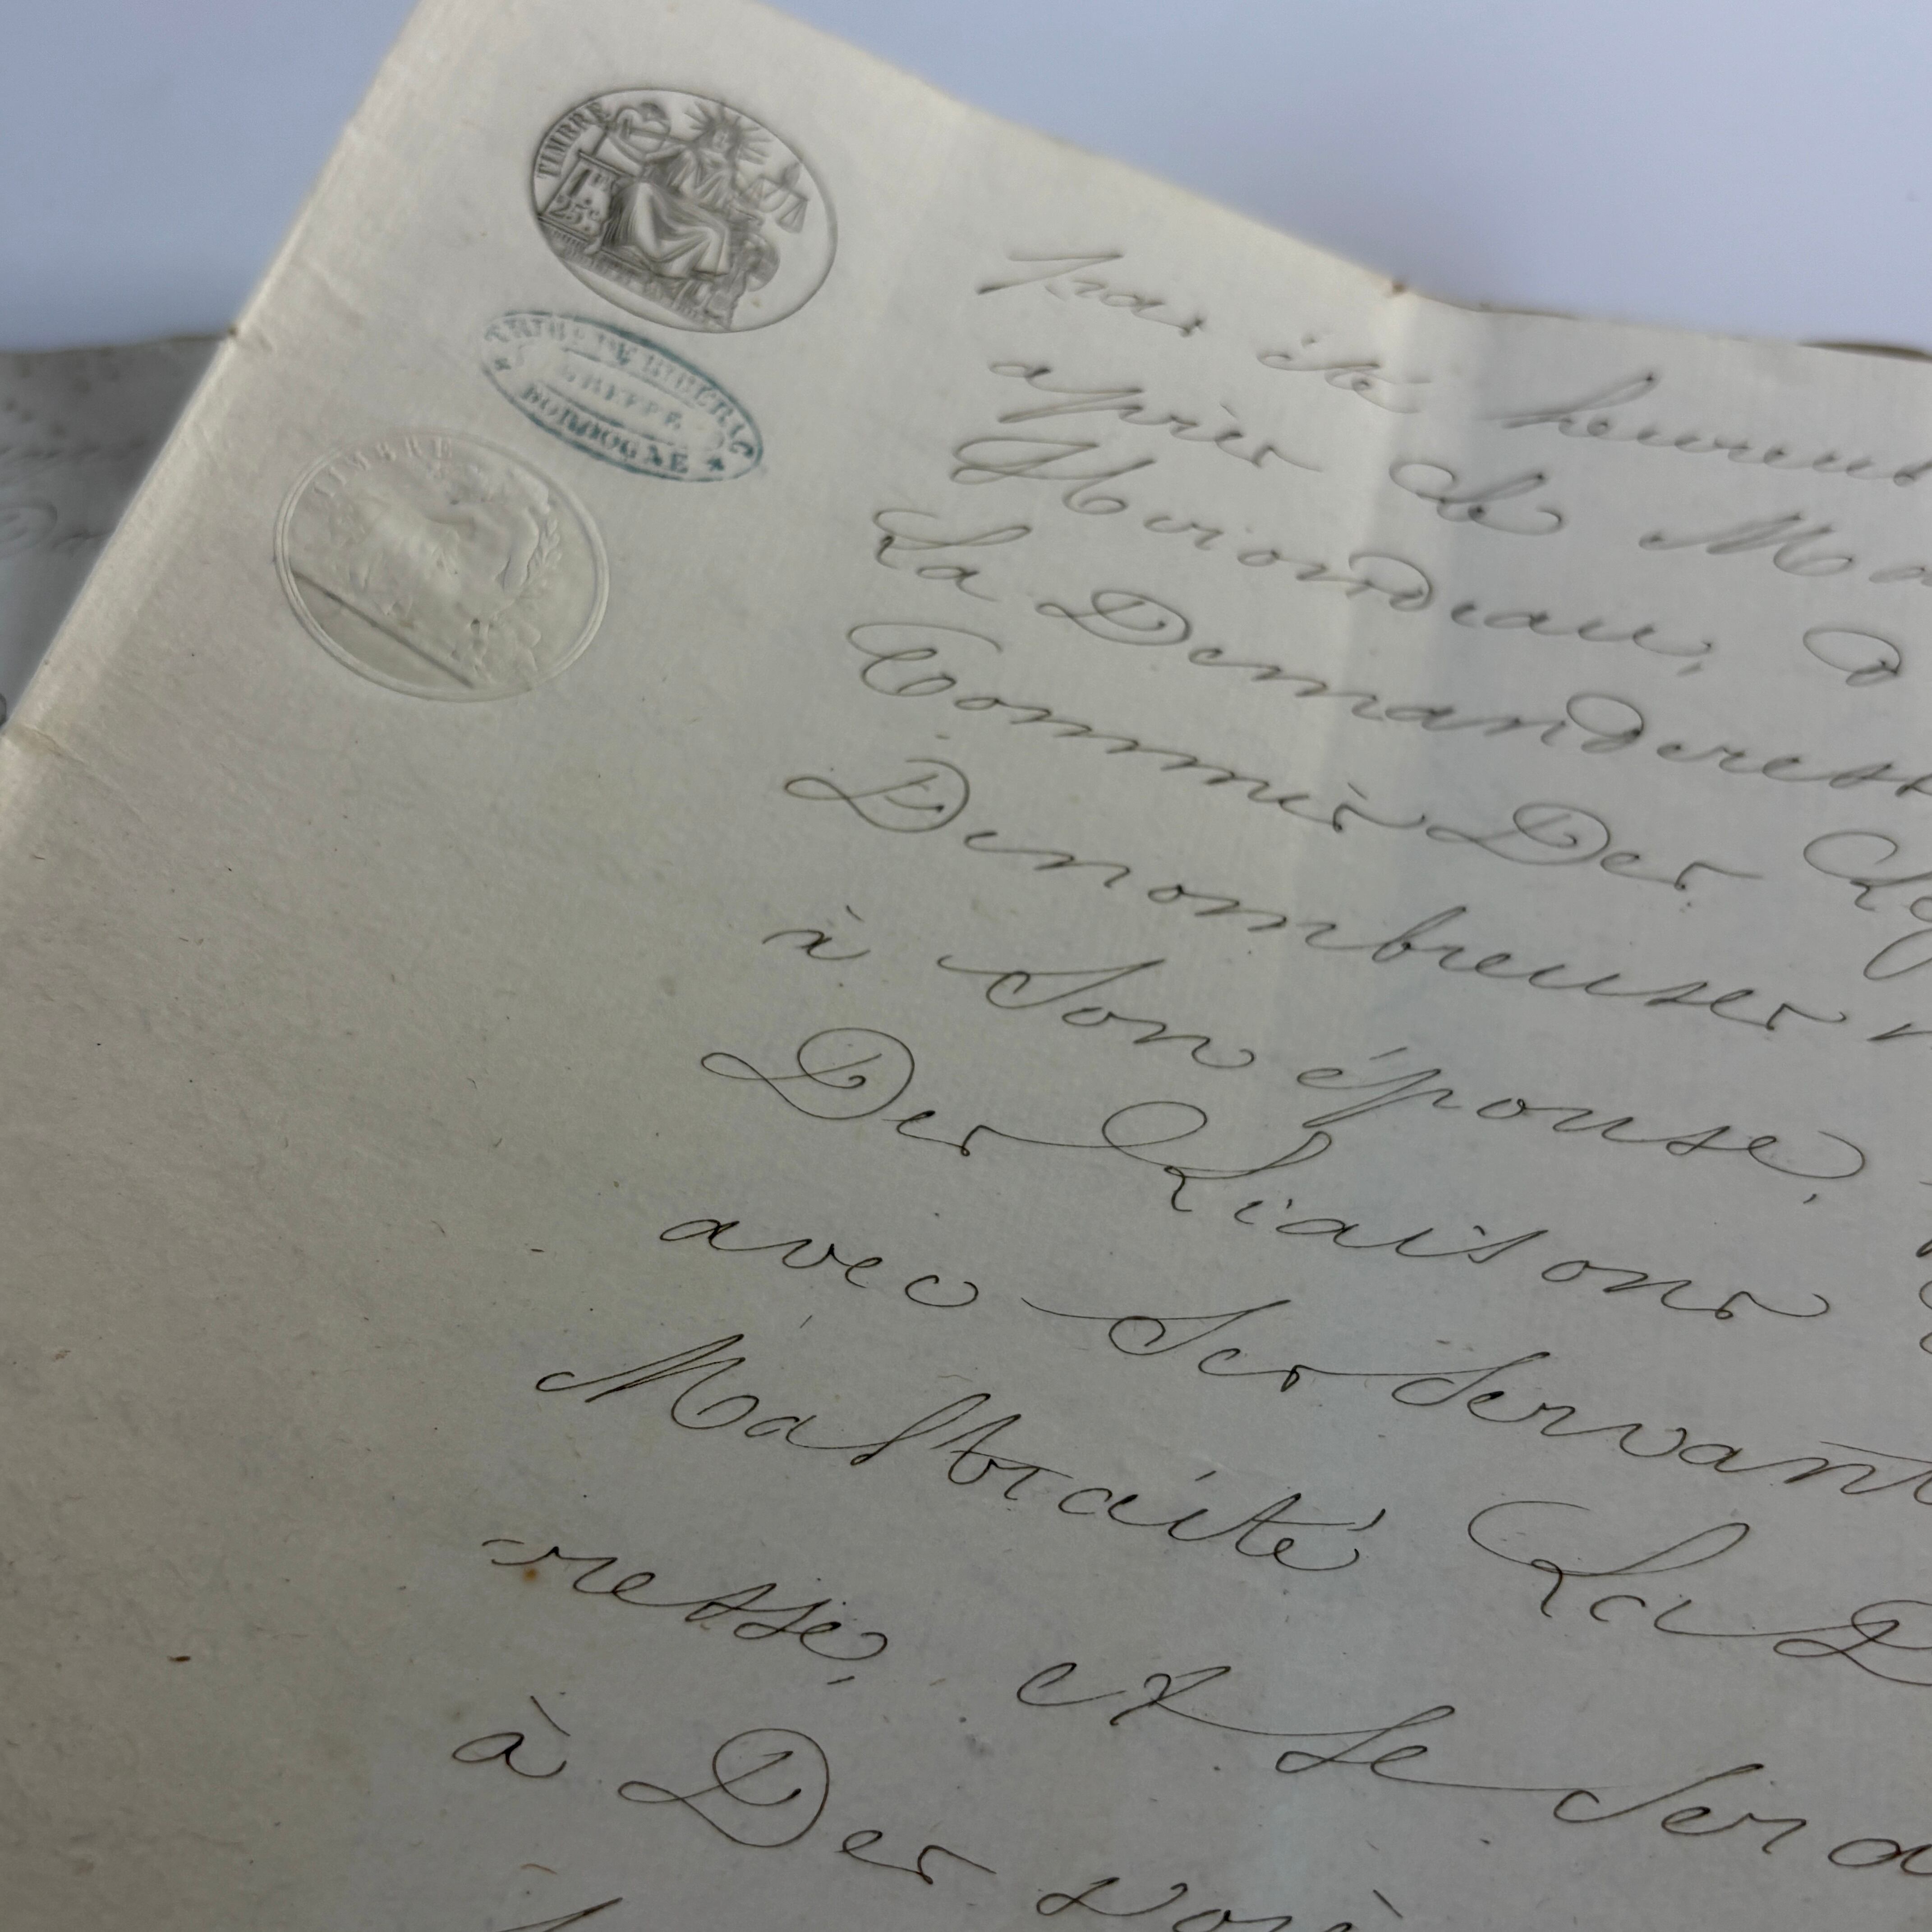 TIMBRE
1 F. 25 C.
TRIB. DE BERGERAC
GREFFE
DORDOGNE
TIMBRE
pas été heureus
après de Ma
La Demanderess
Commis Des
De nombreuses
à Son épouse,
Des Liaisons
avec Ses Servant
Maltraité La D
-resse, et se sera
à Des